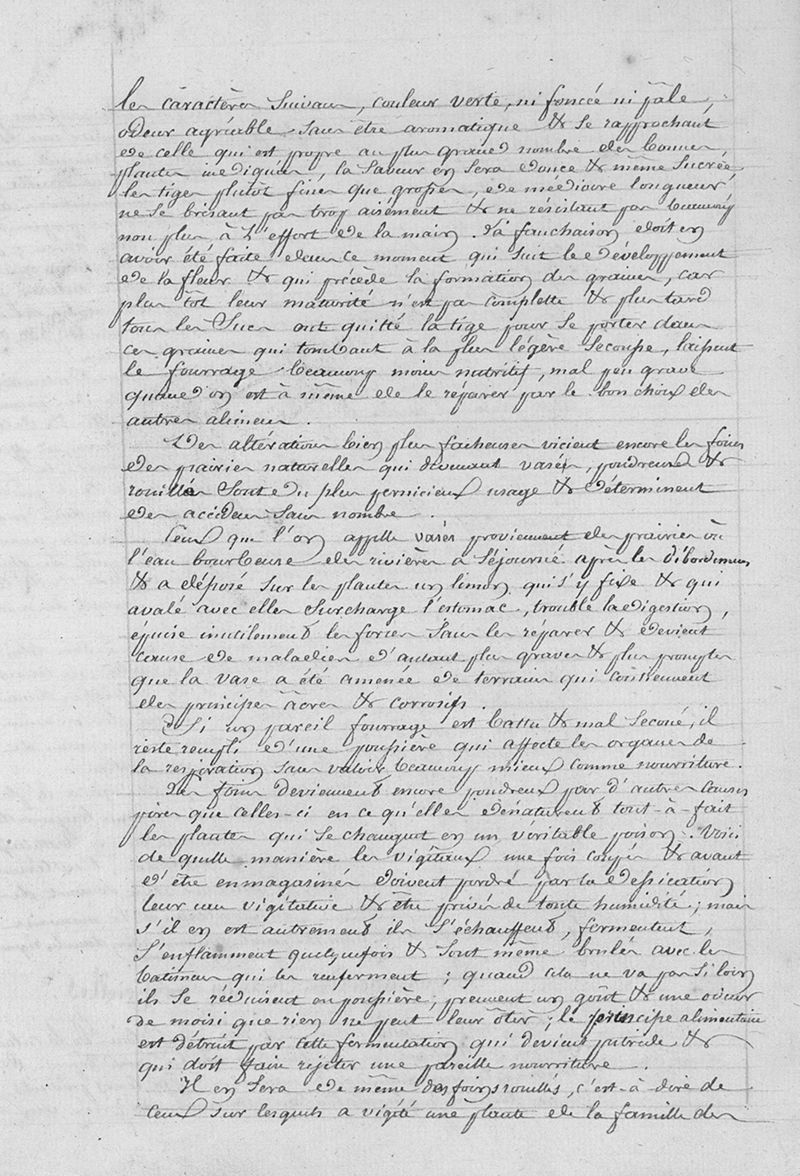 les caractères suivans, couleur verte, ni foncée ni pâle,
odeur agréable sans être aromatique & se rapprochant
de celle qui est propre au plus grand nombre des bonnes
plantes indiquées, la saveur en sera douce & même sucrée,
les tiges plutôt fines que grosses, de médiocre longueur,
ne se brisant pas trop aisément & ne résistant pas beaucoup
non plus, à l'effort de la main. La fauchaison doit en
avoir été faite dans ce moment qui suit le développement
de la fleur & qui précède la formation des graines, car
plus tôt leur maturité n'est pas complette & plus tard
tous les sucs ont quitté la tige pour se porter dans
ces graines qui tombant à la plus légère secousse, laissent
le fourrage beaucoup moins nutritif, mal peu grave
quand on est à même de le réparer par le bon choix des
autres alimens.
Des altérations bien plus facheuses vicient encore les foins
des prairies naturelles qui devenant vasés, poudreux &
rouillés sont du plus pernicieux usage & déterminent
des accidens sans nombre.
Ceux que l'on appelle vasés proviennent des prairies où
l'eau bourbeuse des rivières a séjourné après les débordemens
& a déposé sur les plantes un limon qui s'y fixe & qui
avalé avec elles surcharge l'estomac, trouble la digestion,
épuise inutilement les forces sans les réparer & devient
cause de maladies d'autant plus graves & plus promptes
que la vase a été amenée de terrains qui contiennent
des principes âcres & corrosifs.
Si un pareil fourrage est battu & mal secoué, il
reste rempli d'une poussière qui affecte les organes de
la respiration sans valoir beaucoup mieux comme nourriture.
Les foins deviennent encore poudreux par d'autres causes
pires que celles-ci en ce qu'elles dénaturent tout-à-fait
les plantes qui se changent en un véritable poison. Voici
de quelle manière les végétaux une fois coupés & avant
d'être enmagasinés doivent perdre par la dessication
leur eau végétative & être privés de toute humidité; mais
s'il en est autrement ils s'échauffent, fermentent,
s'enflamment quelquefois & sont même brulés avec les
batimens qui les renferment; quand cela ne va pas si loin
ils se réduisent en poussière, prennent un goût & une odeur
de moisi que rien ne peut leur ôter; le principe alimentaire
est détruit par cette fermentation qui devient putride &
qui doit faire rejeter une pareille nourriture.
Il en sera de même des foins rouillés, c'est-à-dire de
ceux sur lesquels a végété une plante de la famille des